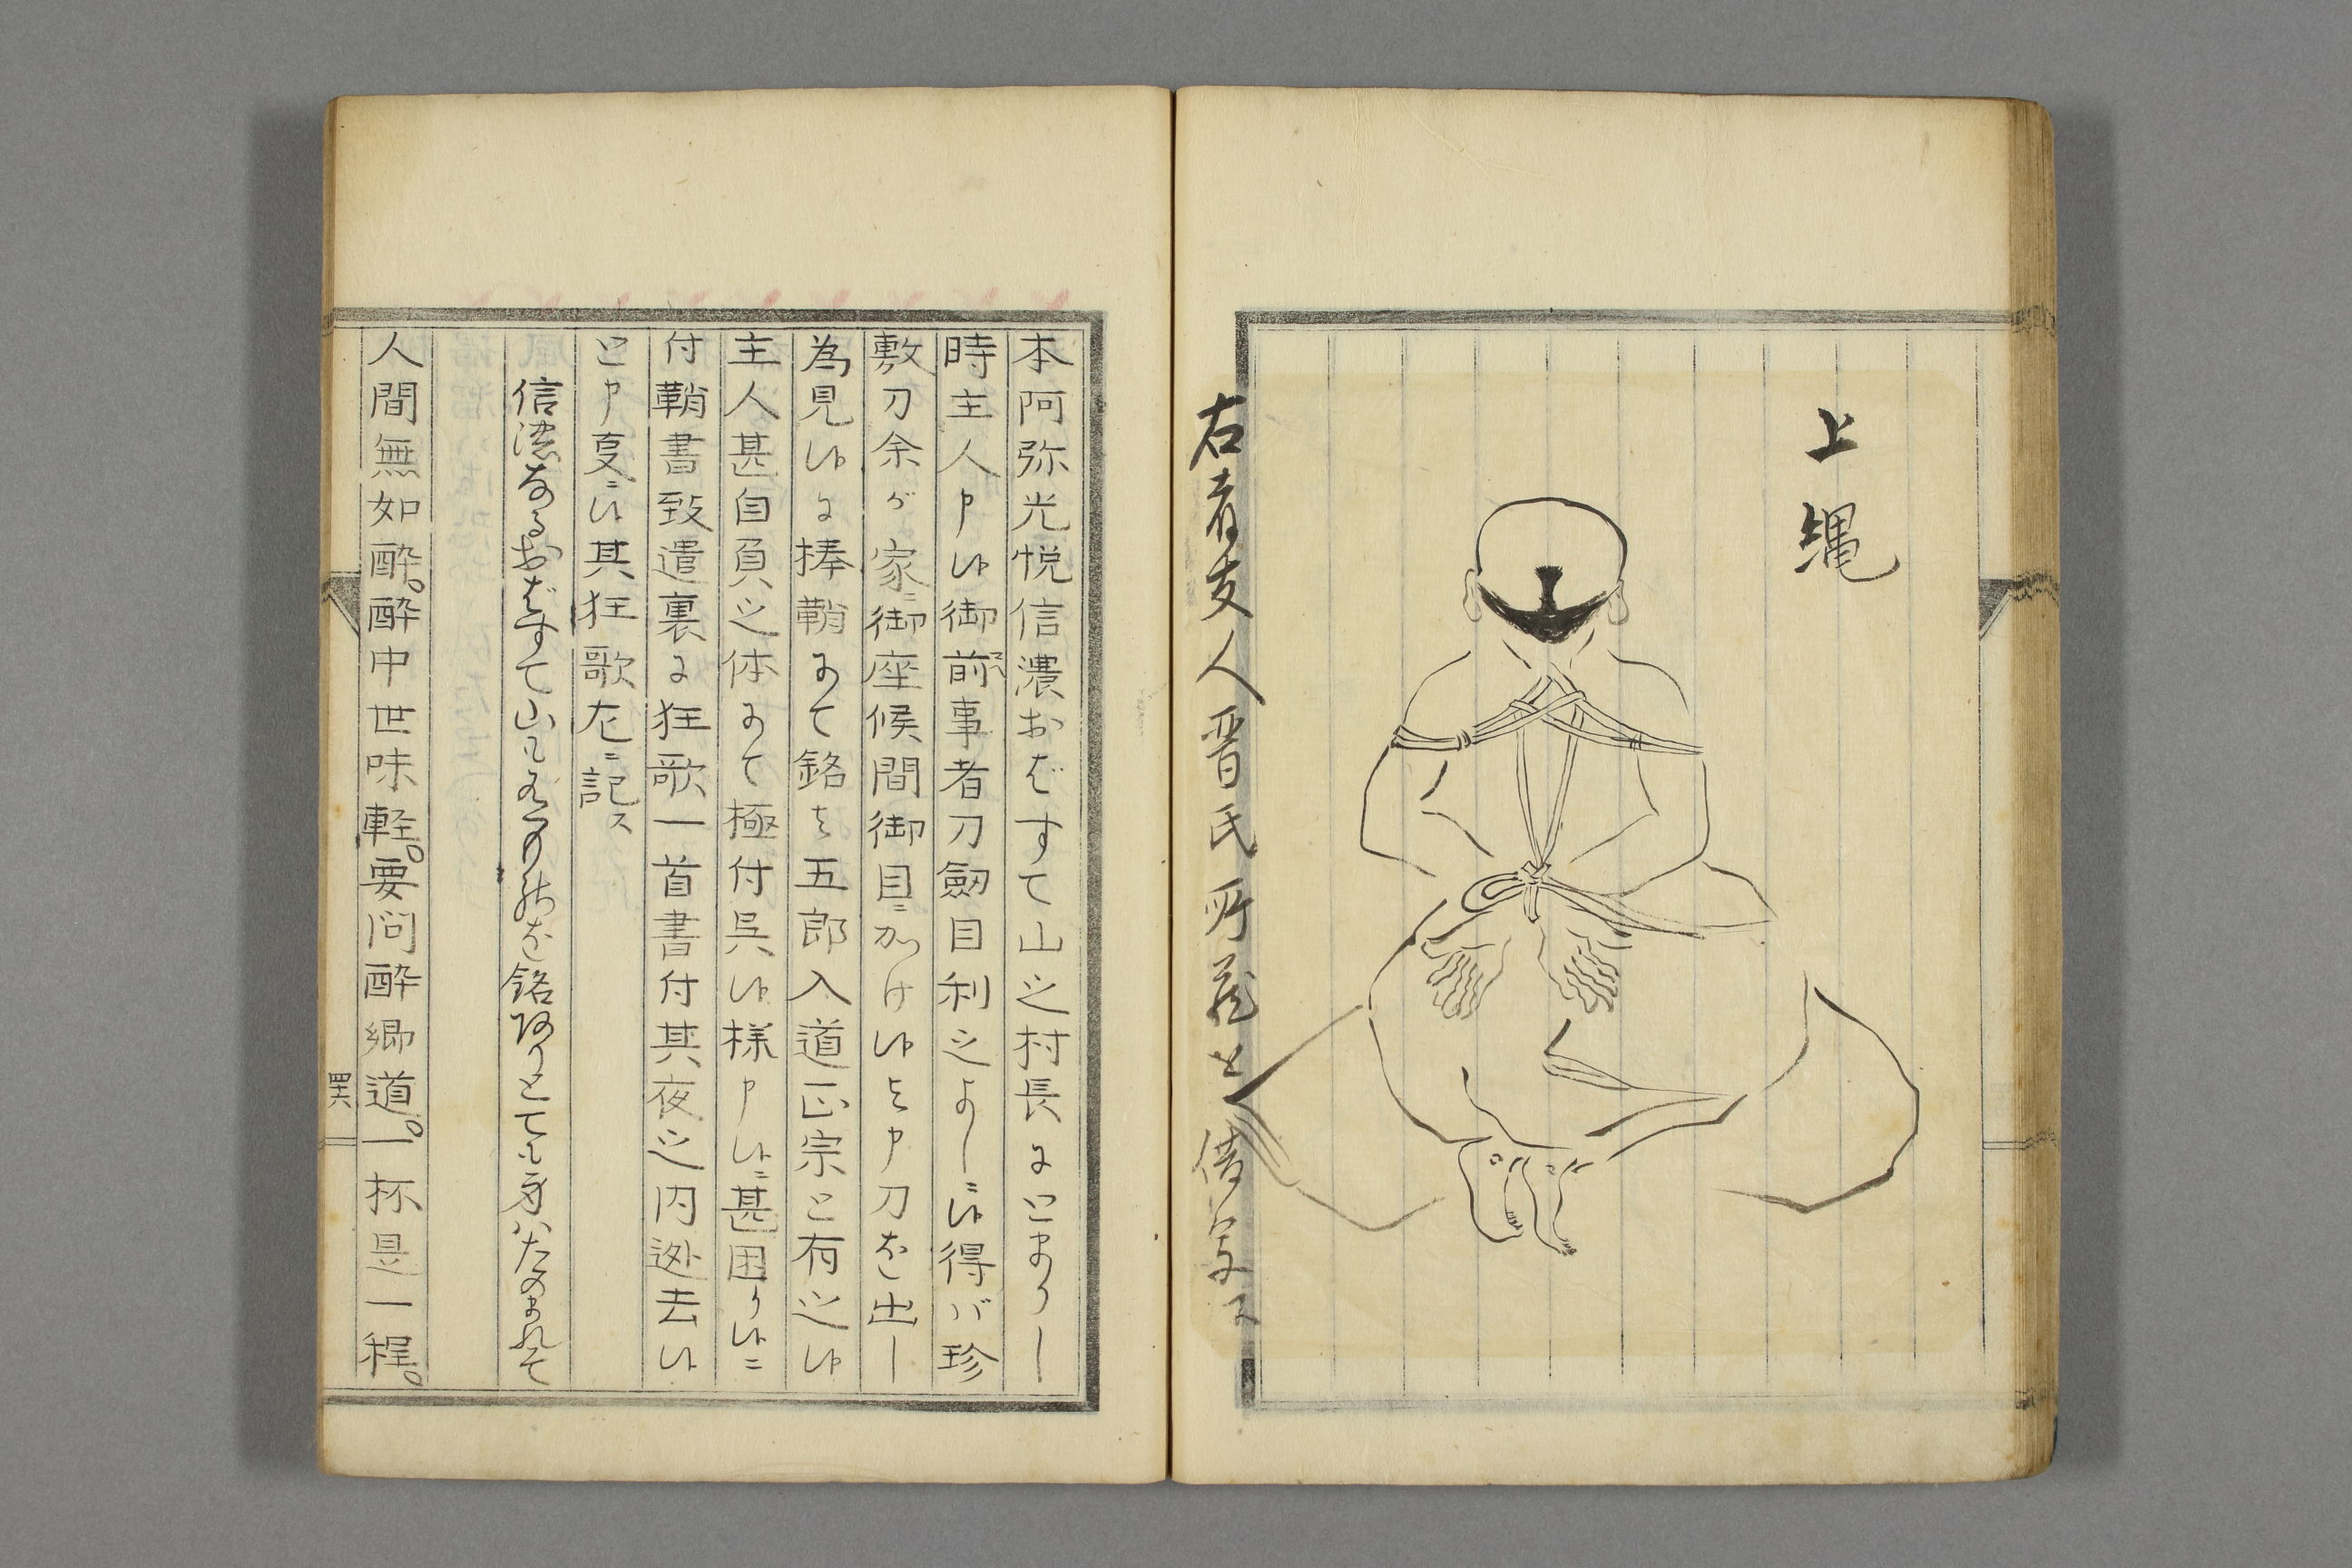 上縄
右者友人晋氏所蔵ヒ借写ス
本阿弥光悦信濃おばすて山之村長にとまりし
時主人申候御前事者刀劔目利之よしニ候得バ珍
敷刀余が家ニ御座候間御目ニかけ候と申刀を出し
為見候に捧鞘にて銘も五郎入道正宗と有之候
主人甚自負之体にて極付呉候様申候ニ甚困り候ニ
付鞘書致遣裏に狂歌一首書付其夜之内逊去候
と申夏ニ候其狂歌左ニ記ス
信濃なるおばすて山も
銘ありとても身ハたのまれそ
人間無如酔。酔中世味軽。要問酔郷道。一杯是一程。
四六